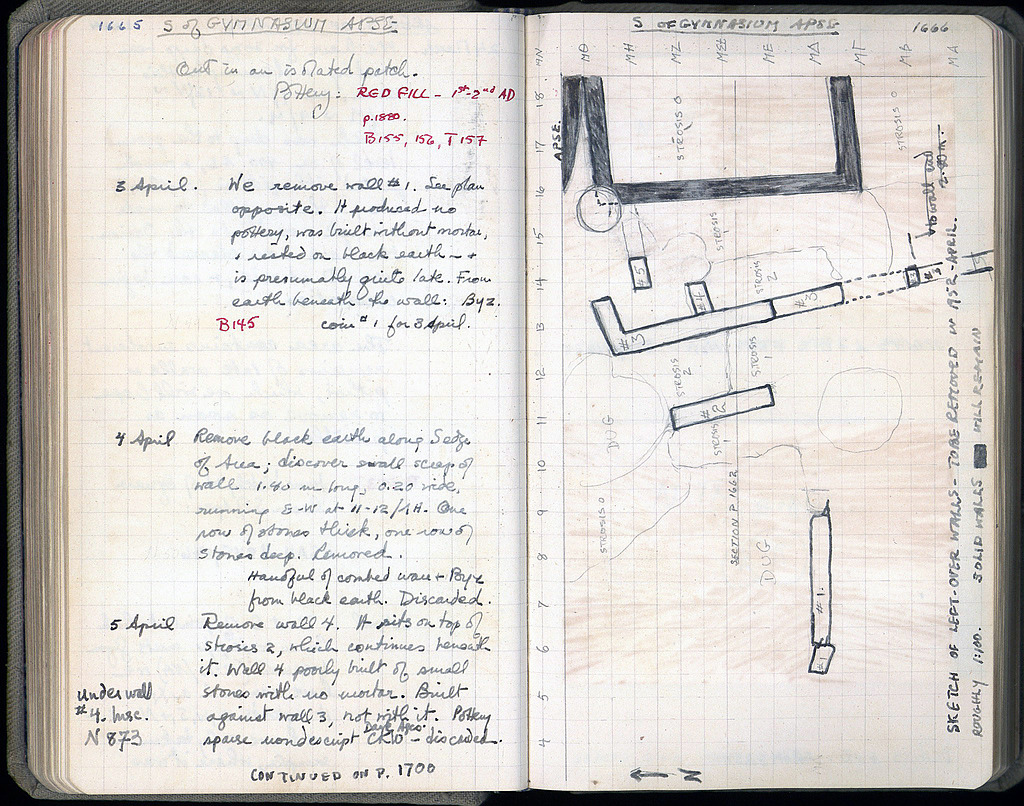 1665 S of GYMNASIUM APSE
Out in an isolated patch.
Pottery: RED FILL - 1st-2nd AD
p.1880.
B155, 156, T 157
3 April. We remove wall #1. See plan
opposite. It produced no
pottery, was built without mortar,
+ rested on black earth - +
is presumably quite late. From
earth beneath the wall: Byz.
B145 coin #1 for 3 April.
4 April Remove black earth along S edge
of Area; discover small scrap of
wall 1.80 m long, 0.20 wide,
running E-W at 11-12/ΛH. One
row of stones thick, one row of
stones deep. Removed.
Handful of combed ware + Byz
from black earth. Discarded.
5 April Remove wall 4. It sits on top of
strosis 2, which continues beneath
it. Wall 4 poorly built of small
stones with no mortar. Built
under wall
#4. Insc.
N 873
against wall 3, not with it. Pottery
sparse nondescript - discarded.
CONTINUED ON P. 1700
S of GYMNASIUM APSE 1666
MN MΘ MH MZ ME MΔ MΓ MB MA
18
17
16
15
14
13
12
11
10
9
8
7
6
5
4
APSE.
STROSIS 0
STROSIS 0
STROSIS 1
STROSIS 2
#5
#4
#3
#3
#3
STROSIS 2
STROSIS 1
#2
STROSIS 1
DUG
STROSIS 0
SECTION P. 1662
DUG
#1
#1
N
SKETCH OF LEFT-OVER WALLS - TO BE REMOVED IN 1952-APRIL.
ROUGHLY 1:100. SOLID WALLS WILL REMAIN